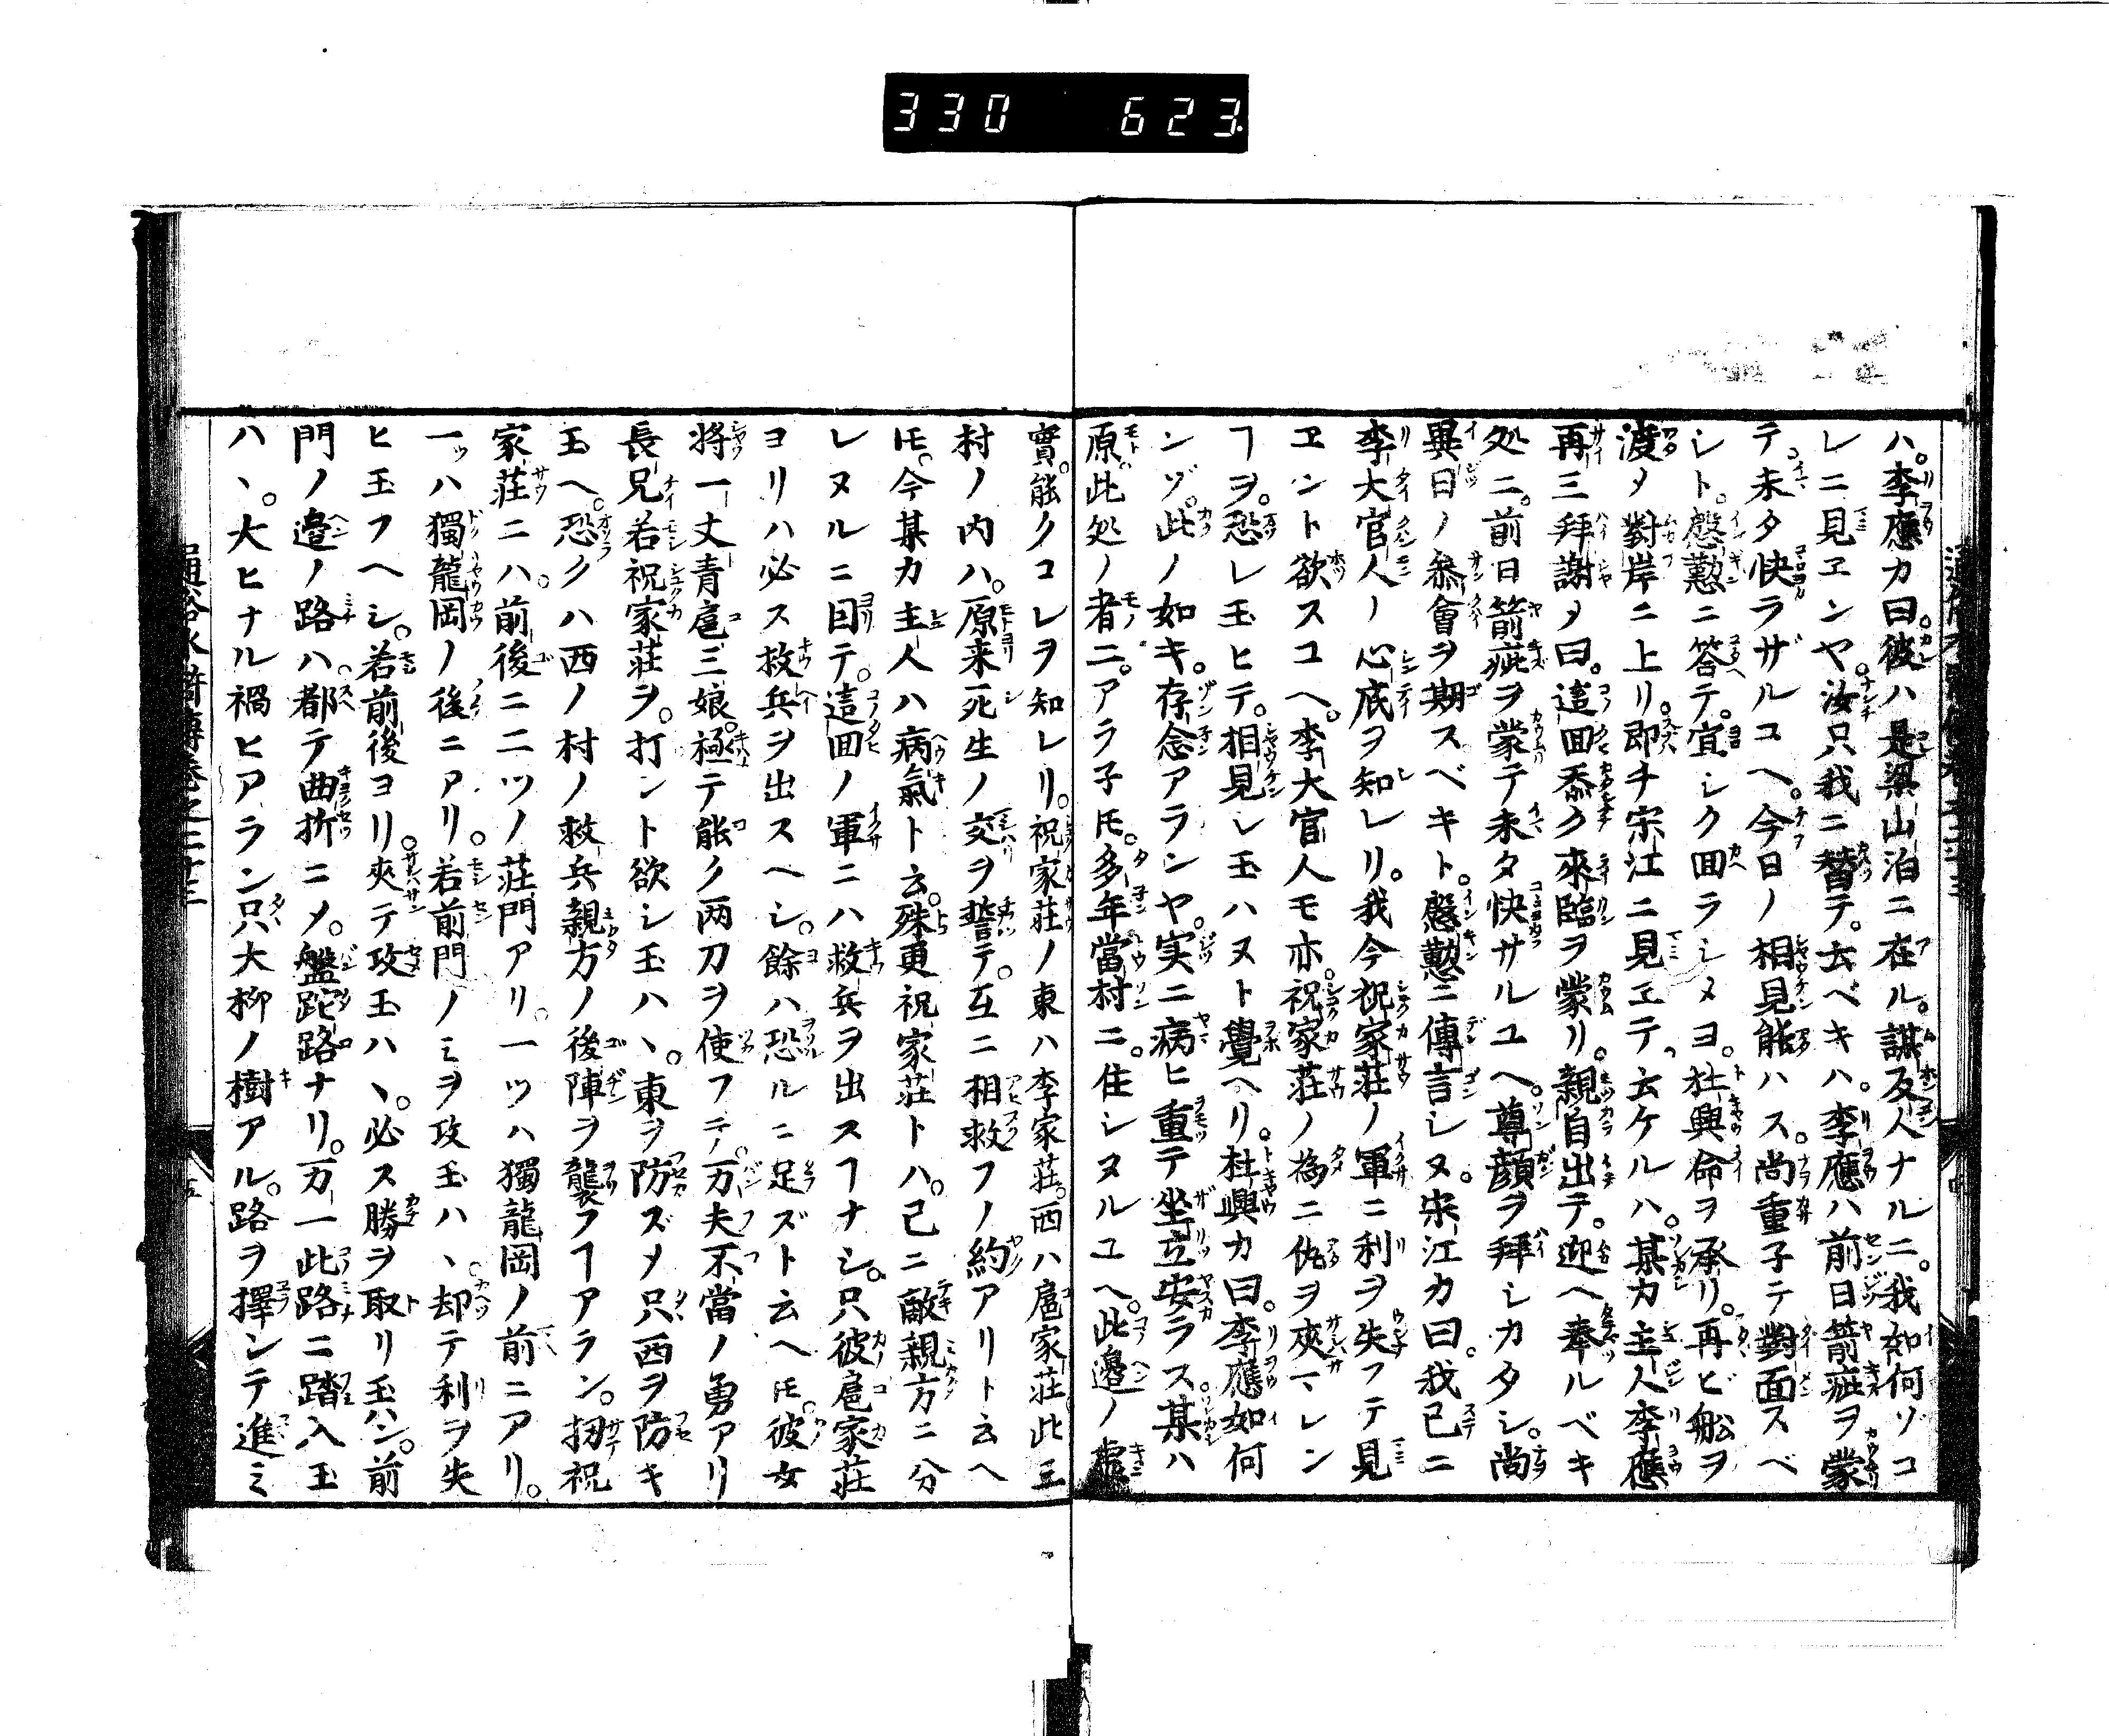 330 623
ハ。李應カ曰。彼ハ是梁山泊ニ在ル。謀反人ナルニ。我如何ソコ
レニ見ヱンヤ。汝只我ニ替テ。去ベキハ。李應ハ前日箭疵ヲ蒙
テ。未タ快ラザルユヘ。今日ノ相見能ハス。尚重子テ對面スベ
シト。慇懃ニ答テ。宜シク回ラシメヨ。杜興命ヲ承リ。再ビ舩ヲ
渡メ對岸ニ上リ。即チ宋江ニ見ヱテ。云ケルハ。某カ主人李應
再三拜謝メ曰。這回忝ク來臨ヲ蒙リ。親自出テ。迎ヘ奉ルベキ
処ニ。前日箭疵ヲ蒙テ未タ快サルユヘ。尊顔ヲ拜シカタシ。尚
異日ノ叅會ヲ期スベキト。慇懃ニ傳言シヌ。宋江カ曰。我已ニ
李大官人ノ心底ヲ知レリ。我今祝家荘ノ軍ニ利ヲ失フテ見
ヱント欲スユヘ。李大官人モ亦。祝家荘ノ為ニ仇ヲ夾マレン
ヿヲ。恐レ玉ヒテ。相見レ玉ハヌト覺ヘリ。杜興カ曰。李應如何
ンゾ。此ノ如キ。存念アランヤ。実ニ病ヒ重テ坐立安ラス。某ハ
原。此処ノ者ニ。アラ子ドモ。多年當村ニ。住シヌルユヘ。此邉ノ虚
實。能クコレヲ知レリ。祝家荘ノ東ハ李家荘。西ハ扈家荘。此三
村ノ内ハ。原来死生ノ交ヲ誓テ。互ニ相救フノ約アリト云ヘ
ドモ。今某カ主人ハ病氣ト云。殊更祝家荘トハ。已ニ敵親方ニ分
レヌルニ因テ。這回ノ軍ニハ救兵ヲ出スヿナシ。只彼扈家荘
ヨリハ必ス救兵ヲ出スヘシ。餘ハ恐ルニ足ズト云ヘドモ。彼女
將一丈青扈三娘。極テ能ク两刀ヲ使フテ。万夫不當ノ勇アリ
長兄若祝家荘ヲ。打ント欲シ玉ハヽ。東ヲ防ズメ只西ヲ防キ
玉ヘ。恐クハ西ノ村ノ救兵親方ノ後陣ヲ襲フヿアラン。扨祝
家荘ニハ。前後ニ二ツノ荘門アリ。一ツハ獨龍岡ノ前ニアリ。
一ッハ獨龍岡ノ後ニアリ。若前門ノミヲ攻玉ハヽ却テ利ヲ失
ヒ玉フヘシ。若前後ヨリ。夾テ攻玉ハヽ。必ス勝ヲ取リ玉ハン。前
門ノ邉ノ路ハ。都テ曲折ニメ。盤跎路ナリ。万一此路ニ踏入玉
ハヽ。大ヒナル禍ヒアラン只大柳ノ樹アル。路ヲ擇ンテ進ミ
通俗水滸傳巻之二十三